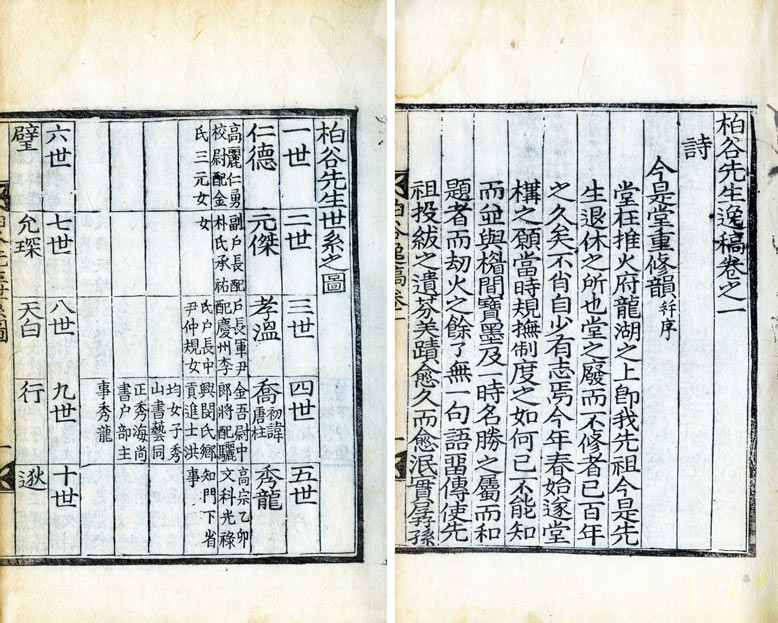 柏谷先生逸稿卷之一
詩
今是堂重修韻幷序
堂在推火府龍湖之上卽我先祖今是先
生退休之所也堂之廢而不修者已百年
之久矣不肖自少有志焉今年春始遂堂
構之願當時規撫制度之如何已不能知
而並與楣間寶墨及一時名勝之屬而和
題者而劫火之餘了無一句語畱傳使先
祖投紱之遺芬美蹟愈久而愈泯實孱孫
柏谷逸稿卷一
柏谷先生世系之圖
一世
仁德
高麗仁勇
校尉配金
氏三元女
二世
元傑
副戶長配
朴氏承祐
女
三世
孝溫
戶長軍尹
配慶州李
氏戶長中
尹仲規女
四世
喬
初諱
唐柱
金吾尉中
郞將配驪
興閔氏鄕
貢進士洪
均女子秀
山書藝同
正秀海尚
書戶部主
事秀龍
五世
秀龍
高宗乙卯
文科光祿
知門下省
事
六世
璧
七世
允琛
八世
天白
九世
行
十世
逖
柏谷先生世系圖
一